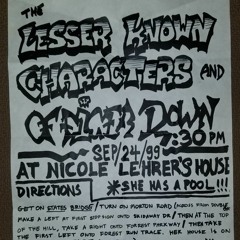 THE
LESSER KNOWN
CHARACTERS AND
OFFICER DOWN
7:30PM
SEP/24/99
AT NICOLE LEHRER'S HOUSE
DIRECTIONS *SHE HAS A POOL!!!
GET ON STATES BRIDGE/ TURN ON MORTON ROAD/ (ACROSS FROM
MAKE A LEFT AT FIRST STOPSIGN ONTO / THEN AT THE TOP
OF THE HILL, TAKE A RIGHT ONTO FOREST PARKWAY/ THEN TAKE
THE FIRST LEFT ONTO FOREST RUN TRACE. HER HOUSE IS ON